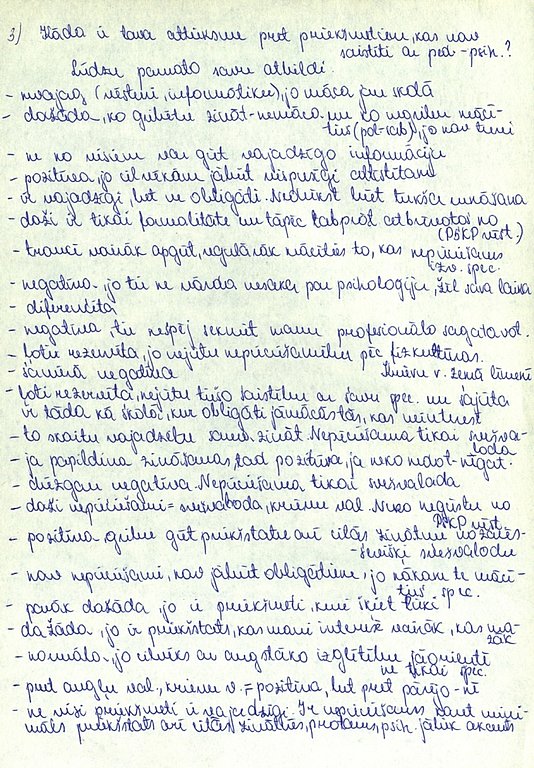 3) Kāda ir tava attieksme pret priekšmetiem, kas nav
saistīti ar ped-psih.?
Lūdzu pamato savu atbildi.
- (vēsturi, informātiku), jo māca jau skolā
- dažāda, ko gribētu zināt - nemāca, un ko negribu mācī-
ties (pol-), jo nav
- ne no visiem var gūt vajadzīgo informāciju
- pozitīva, jo cilvēkam jābūt vispusīgi attīstītam
- ir vajadzīgi, bet ne obligāti. Nedrīkst būt tukša
- daži ir tikai formalitāte un tāpēc labprāt atbrīvotos no
(PSKP vēst.)
- traucē vairāk apgūt, regulārāk mācīties to, kas nepieciešams
spec.
- negatīva - jo tu ne vārda par psiholoģiju, žēl sava laika
- diferencēta
- negatīva, tie nespēj sekmēt manu profesionālo sagatavot.
- ļoti rezervēta, jo nejūtu nepieciešamību pēc fizkultūras.
v. zemā līmenī
- negatīva
- ļoti rezervēta, nejūtu tiešo saistību ar savu spec. un sajūta
ir tāda kā skolā, kur obligāti jāmācās tas, kas neinteresē
- to skaitu vajadzētu zināt. Nepieciešama tikai svešva-
loda
- ja papildina zināšanas, tad pozitīva, ja neko nedod - negat.
- diezgan negatīva. Nepieciešama tikai svešvaloda
- daži nepieciešami = svešvaloda, krievu val. Neko negūstu no
PSKP vēst.
- pozitīva gribu gūt priekšstatu arī citās zinātnu nozarēs -
- svešvalodu
- nav nepieciešami, nav jābūt obligātiem, jo nākam te mācī-
ties spec.
- pavāk dažāda, jo ir priekšmeti, kuri šķiet lieki
- dažāda, jo ir priekšmets, kas mani interesē vairāk, kas ma-
zāk
- normāla, jo cilvēks ar augstāko izglītību jāorientē
ne tikai spec.
- pret angļu val., krievu v. = pozitīva, bet pret pārējo - nē
- ne visi priekšmeti ir vajadzīgi. Ir nepieciešams kaut mini-
māls priekšstats arī citās zinātnēs, protams, psih. jāliek akcents